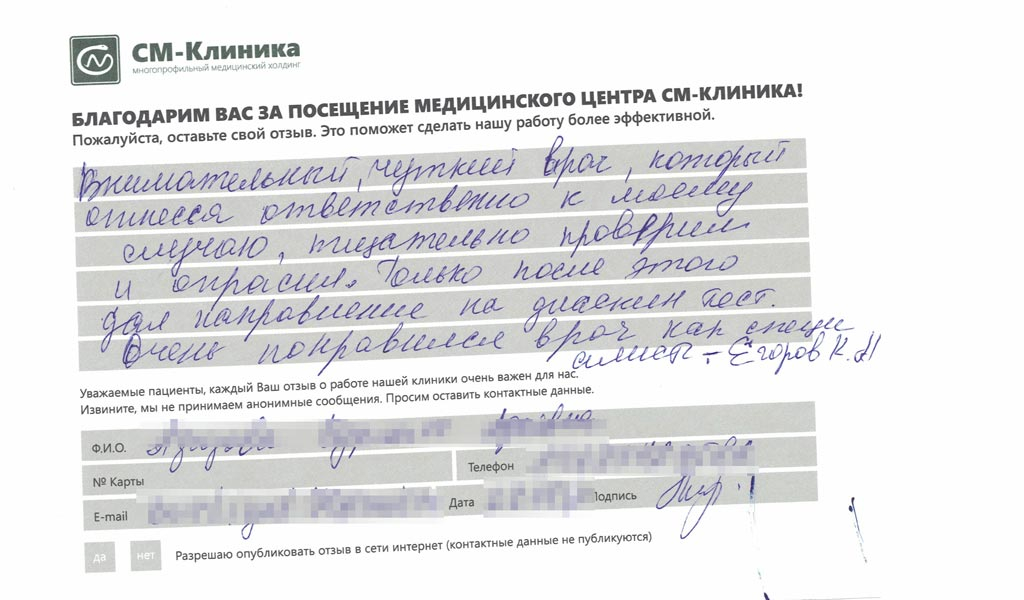 СМ-Клиника
многопрофильный медицинский холдинг
БЛАГОДАРИМ ВАС ЗА ПОСЕЩЕНИЕ МЕДИЦИНСКОГО ЦЕНТРА СМ-КЛИНИКА!
Пожалуйста, оставьте свой отзыв. Это поможет сделать нашу работу более эффективной.
Внимательный, чуткий врач, который
отнесся ответственно к моему
случаю, тщательно проверил
и опросил. Только после этого
дал направление на диаскин тест.
Очень понравился врач как специ
алист - Егоров К. Н
Уважаемые пациенты, каждый Ваш отзыв о работе нашей клиники очень важен для нас.
Извините, мы не принимаем анонимные сообщения. Просим оставить контактные данные.
Ф.И.О.
№ Карты Телефон
E-mail Дата Подпись
да нет Разрешаю опубликовать отзыв в сети интернет (контактные данные не публикуются)